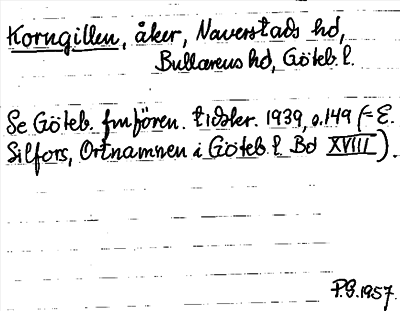 Korngillen, åker, Naverstads hd,
Bullarens hd, Göteb. l.
Se Göteb. fmfören. tidskr. 1939, s. 149 (= E.
Silfors, Ortnamnen i Göteb. l. Bd XVIII).
P.G. 1957.